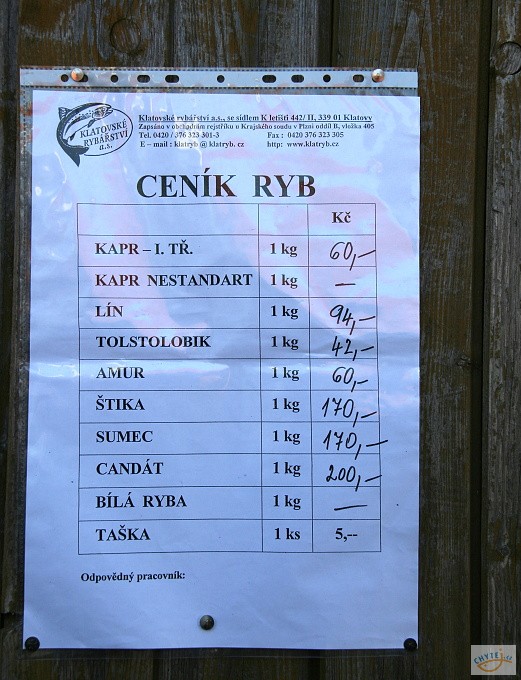 KLATOVSKÉ
RYBÁŘSTVÍ
a.s.
Klatovské rybářství a.s., se sídlem K letišti 442/ II, 339 01 Klatovy
Zapsáno v obchodním rejstříku u Krajského soudu v Plzni oddíl B, vložka 405
Tel. 0420 / 376 323 301-3 Fax : 0420 376 323 305
E – mail : klatryb @ klatryb.cz http: www.klatryb.cz
CENÍK RYB
Kč
KAPR – I. TŘ. 1 kg 60,–
KAPR NESTANDART 1 kg –
LÍN 1 kg 94,–
TOLSTOLOBIK 1 kg 42,–
AMUR 1 kg 60,–
ŠTIKA 1 kg 170,–
SUMEC 1 kg 170,–
CANDÁT 1 kg 200,–
BÍLÁ RYBA 1 kg –
TAŠKA 1 ks 5,--
Odpovědný pracovník:
CHYTEJ.cz